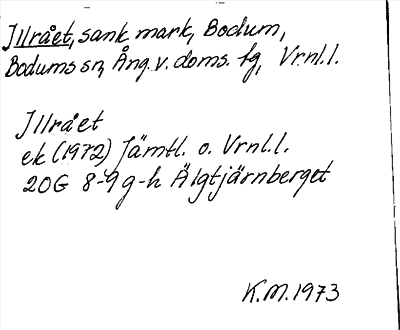 Illrået, sank mark, Bodum,
Bodums sn, Ång. v. doms. fg, Vrnl.l.
Illrået
ek (1972) Jämtl. o. Vrnl.l.
20G 8-9 g-h Älgtjärnberget
K.M. 1973